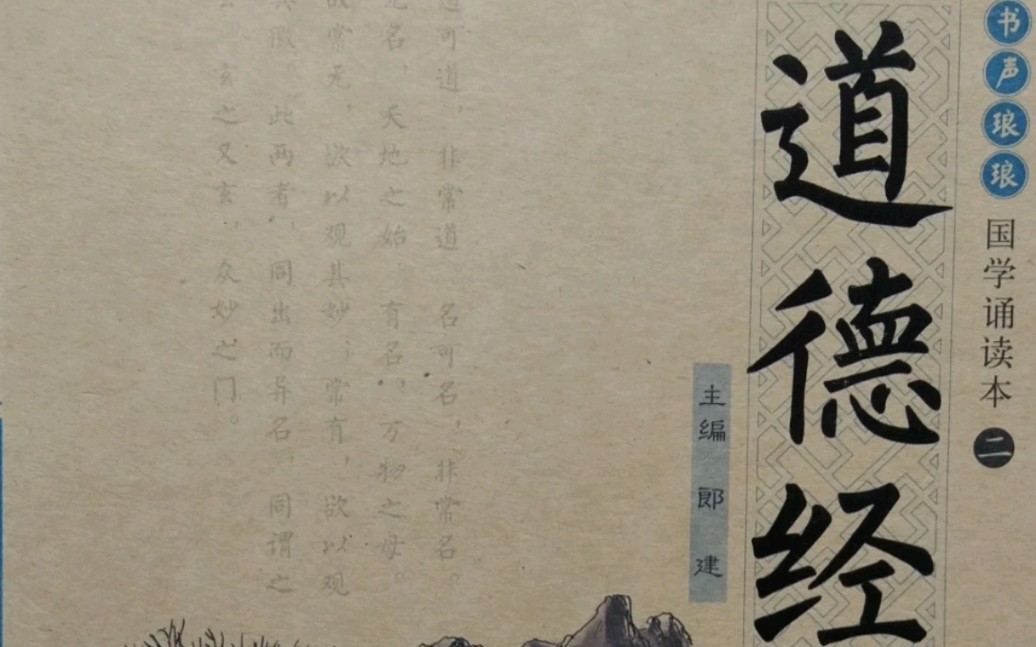 书声琅琅
国学诵读本 二
道德经
主编 郎建
道可道,非常道。名可名,非常名。
无名,天地之始。有名,万物之母。
故常无,欲以观其妙;常有,欲以观
其徼。此两者,同出而异名,同谓之
玄。玄之又玄,众妙之门。